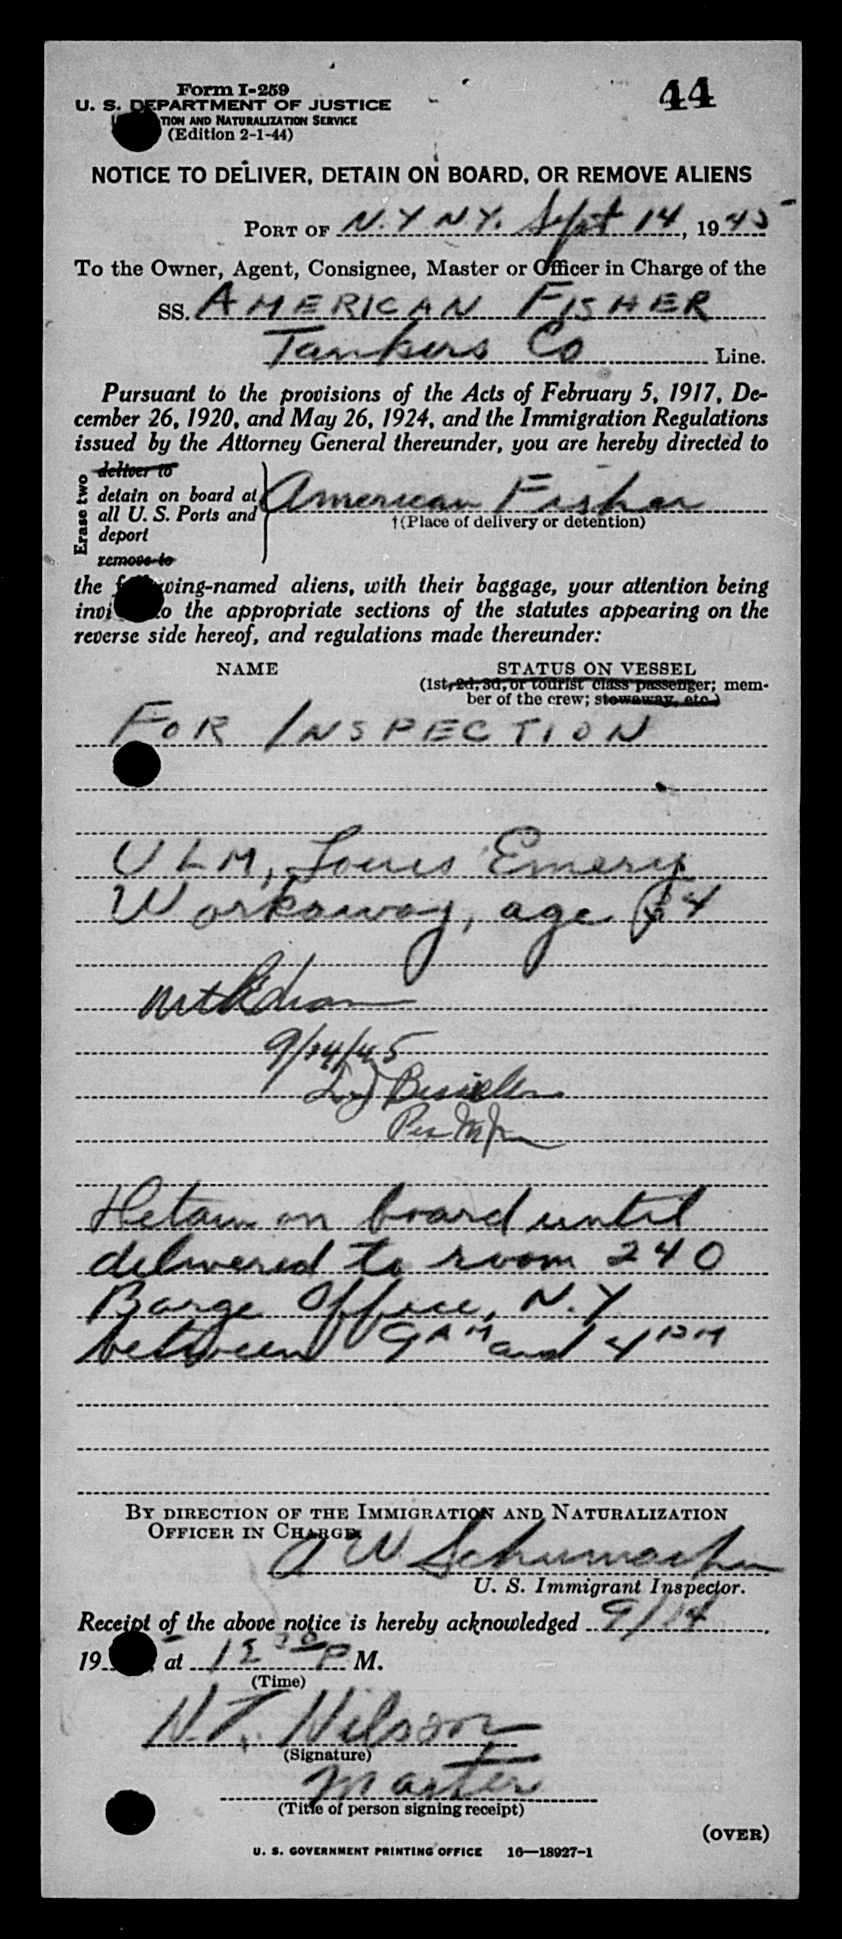 Form I-259
44
U. S. DEPARTMENT OF JUSTICE
TION AND NATURALIZATION SERVICE
(Edition 2-1-44)
NOTICE TO DELIVER, DETAIN ON BOARD, OR REMOVE ALIENS
PORT OF N.Y NY. Sept 14, 1945
To the Owner, Agent, Consignee, Master or Officer in Charge of the
SS. AMERICAN FISHER
Tankers Co Line.
Pursuant to the provisions of the Acts of February 5, 1917, De-
cember 26, 1920, and May 26, 1924, and the Immigration Regulations
issued by the Attorney General thereunder, you are hereby directed to
Erase two
deliver to
detain on board at
all U. S. Ports and
deport
remove to
American Fisher
†(Place of delivery or detention)
the following-named aliens, with their baggage, your attention being
invi to the appropriate sections of the statutes appearing on the
reverse side hereof, and regulations made thereunder:
NAME STATUS ON VESSEL
(1st, 2d, 3d, or tourist class passenger; mem-
ber of the crew; stowaway, etc.)
FOR INSPECTION
ULM, Louis Emery
Workaway, age 4
9/14/45
Per
Detain on board until
delivered to room 240
Barge Office, N.Y
between 9 AM and 4 PM
BY DIRECTION OF THE IMMIGRATION AND NATURALIZATION
OFFICER IN CHARGE:
W Schumacher
U. S. Immigrant Inspector.
Receipt of the above notice is hereby acknowledged 9/14
19 at P M.
(Time)
N.T. Nilson
(Signature)
Master
(Title of person signing receipt)
(OVER)
U. S. GOVERNMENT PRINTING OFFICE 16—18927-1